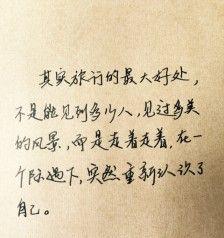 其实旅行的最大好处，
不是能见到多少人，见过多美
的风景，而是走着走着，在一
个际遇下，突然重新认识了
自己。